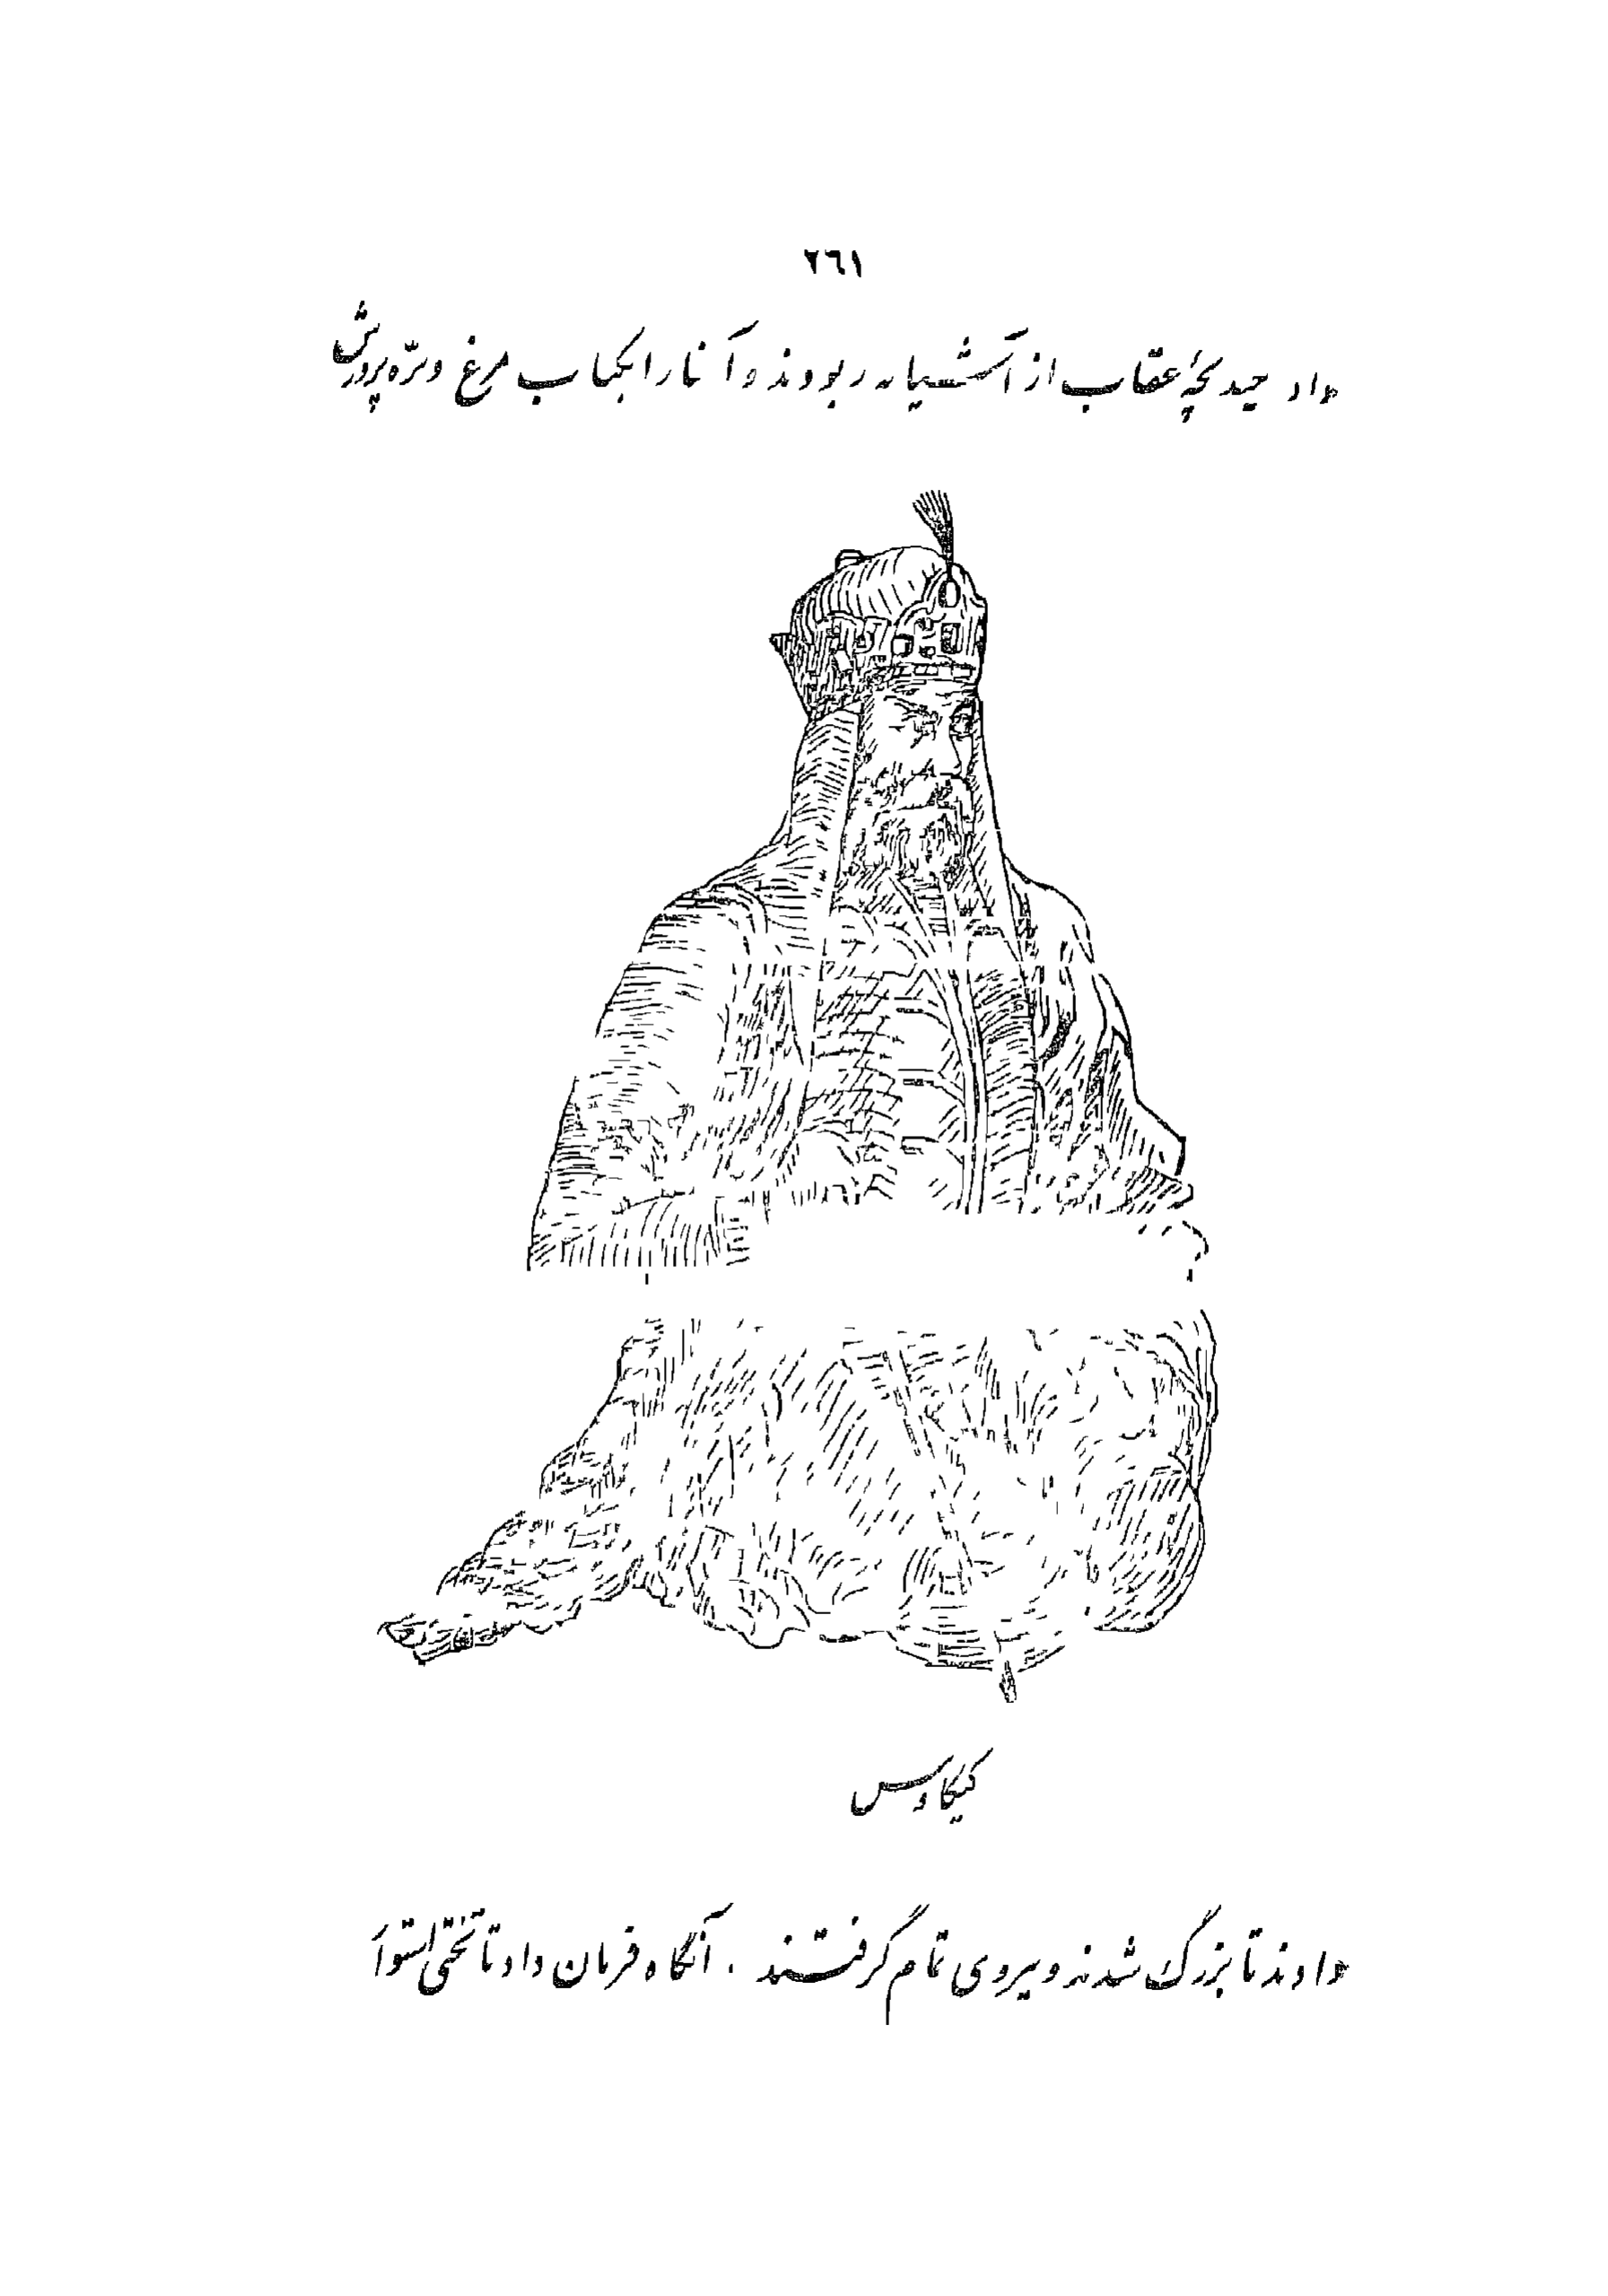 ٢٦١
داد چند بچهٔ عقاب از آشیانه ربودند و آنها را بکباب مرغ و بره پرورش
کیکاوس
دادند تا بزرگ شدند و نیروی تمام گرفتند . آنگاه فرمان داد تا تختی استوار